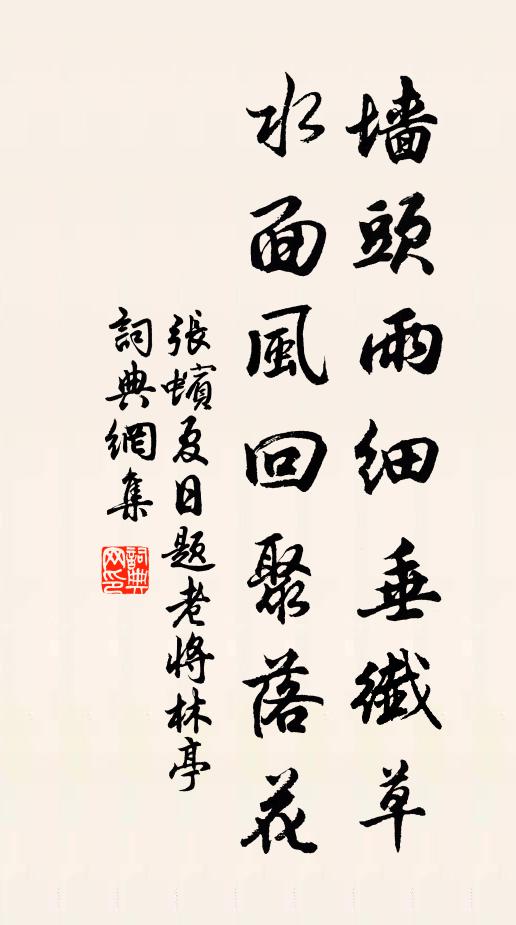 墙頭雨細垂纖草
水面風回聚落花
張蠙夏日題老將林亭
詞典網集
詞典網印